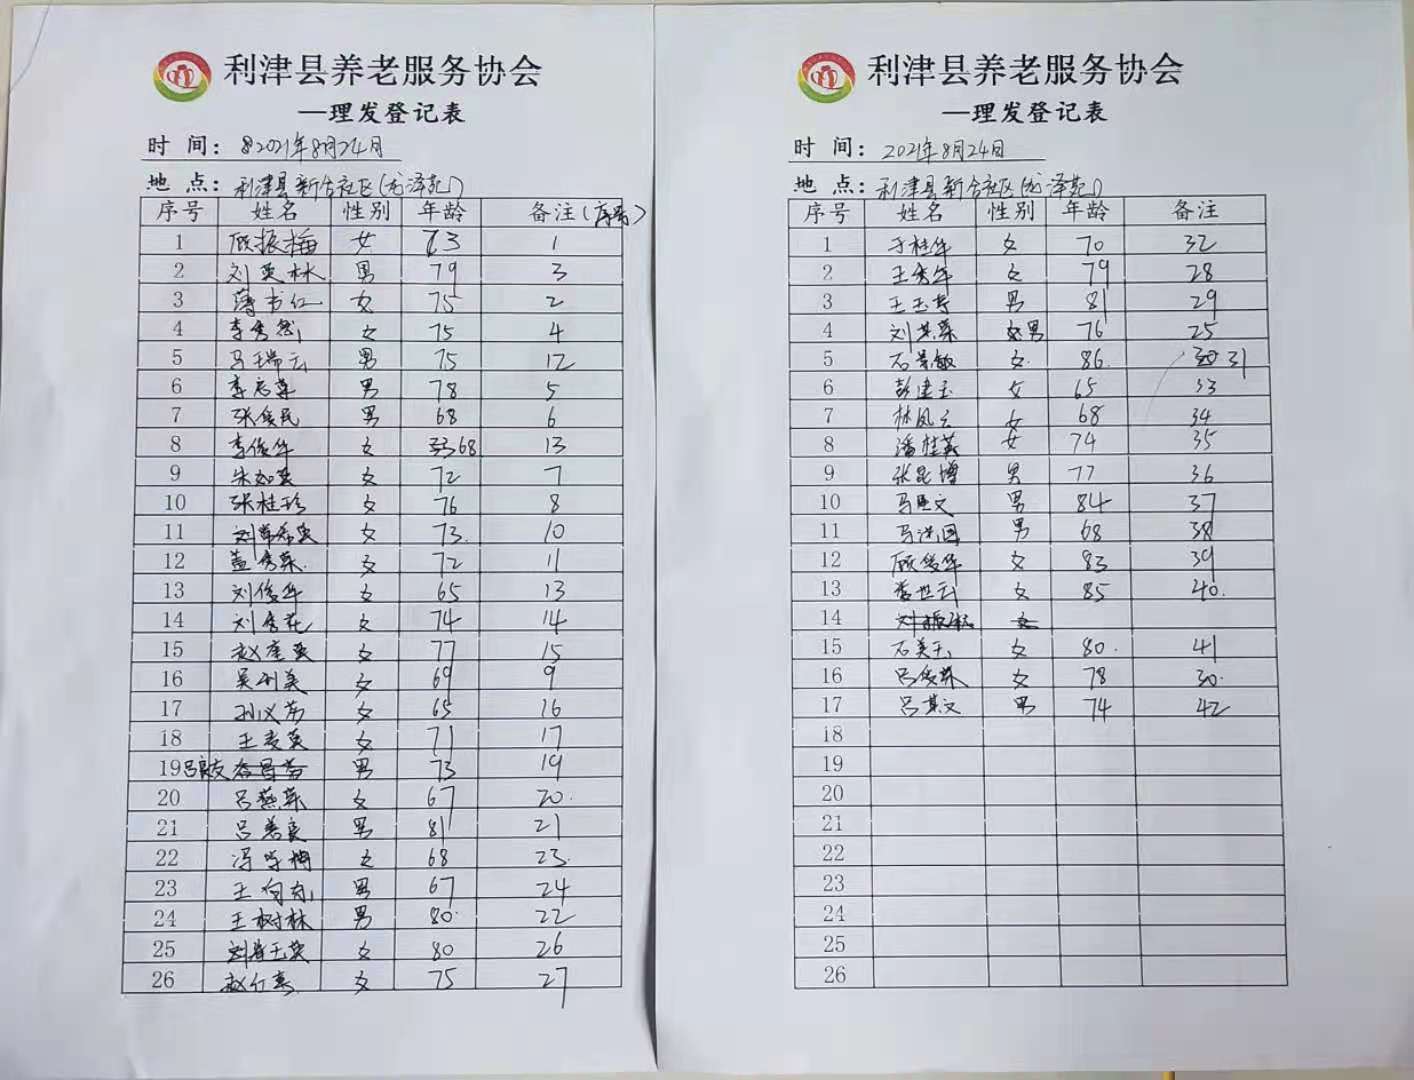 利津县养老服务协会
—理发登记表
时 间: 2021年8月24月
地 点: 利津县新合社区(龙泽苑)
序号 姓名 性别 年龄 备注(序号)
1 顾振梅 女 73 1
2 刘英林 男 79 3
3 薄书红 女 75 2
4 李秀 女 75 4
5 马瑞云 男 75 12
6 李 男 78 5
7 张俊民 男 68 6
8 李俊华 女 68 13
9 朱如英 女 72 7
10 张桂珍 女 76 8
11 刘 女 73 10
12 盖秀英 女 72 11
13 刘俊华 女 65 13
14 刘秀花 女 74 14
15 赵 英 女 77 15
16 吴 美 女 69 9
17 孙义芳 女 65 16
18 王麦英 女 71 17
19 吕 友 男 73 19
20 吕燕英 女 67 20
21 吕善良 男 81 21
22 冯学梅 女 68 23
23 王向东 男 67 24
24 王树林 男 80 22
25 刘玉英 女 80 26
26 赵仁 女 75 27
利津县养老服务协会
—理发登记表
时 间: 2021年8月24日
地 点: 利津县新合社区(龙泽苑)
序号 姓名 性别 年龄 备注
1 于桂华 女 70 32
2 王秀华 女 79 28
3 王玉 男 81 29
4 刘 男 76 25
5 石景敏 女 86 31
6 彭建玉 女 65 33
7 林凤云 女 68 34
8 潘桂英 女 74 35
9 张 博 男 77 36
10 马 文 男 84 37
11 马洪国 男 68 38
12 顾俊华 女 83 39
13 世云 女 85 40
14 女
15 石美玉 女 80 41
16 吕俊英 女 78 30
17 吕其文 男 74 42
18
19
20
21
22
23
24
25
26